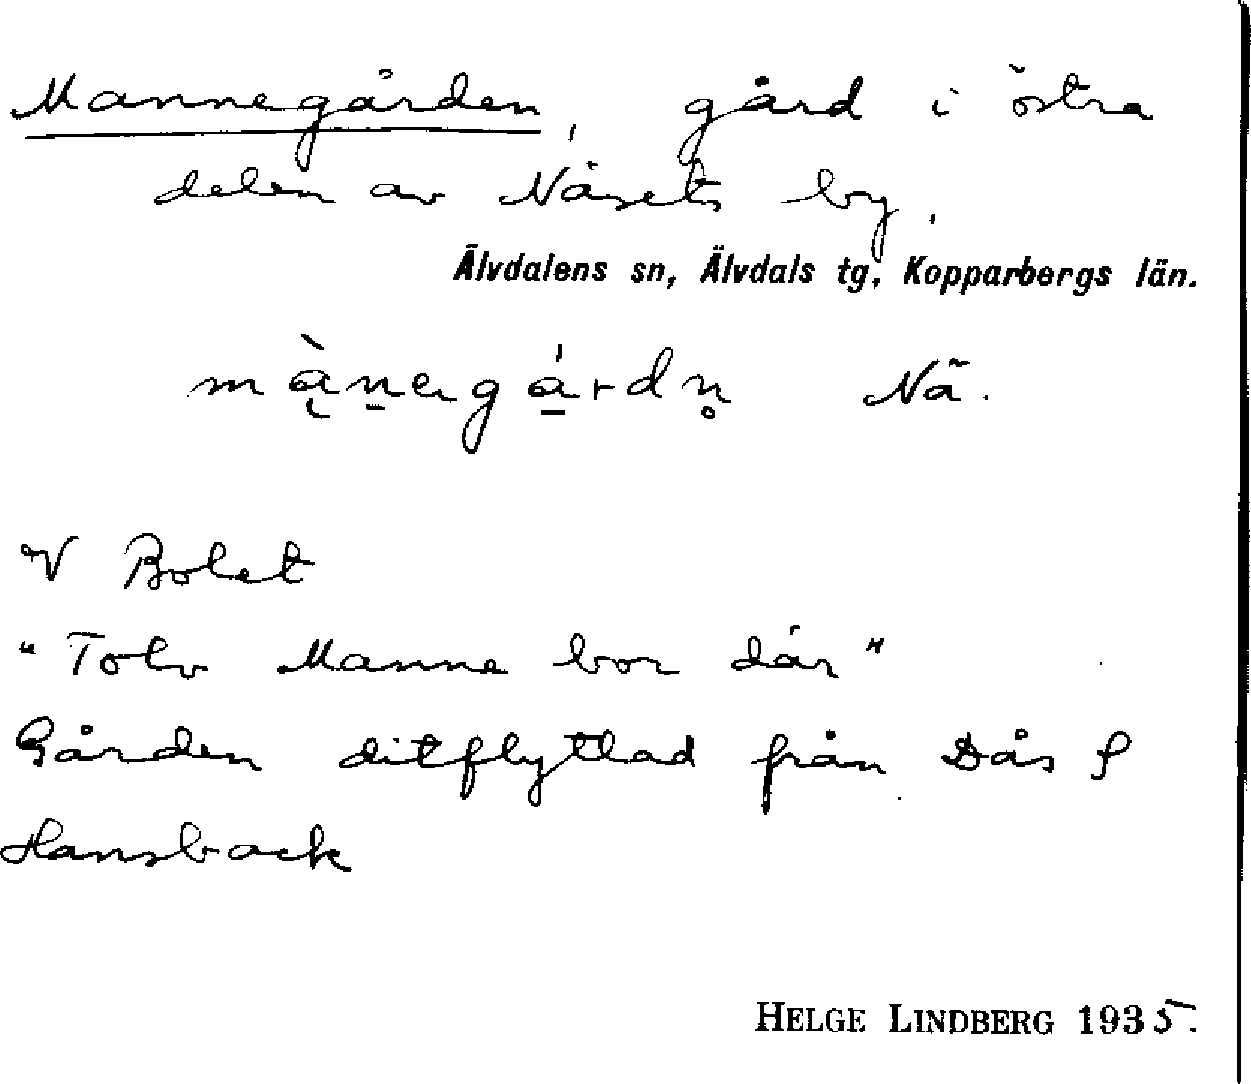 Mannegården, gård i östra
delen av Näsets by.
Älvdalens sn, Älvdals tg, Kopparbergs län.
Nä.
V Bolet
"Tolv Manne bor där"
Gården ditflyttad från Dås
Hansback
HELGE LINDBERG 1935.